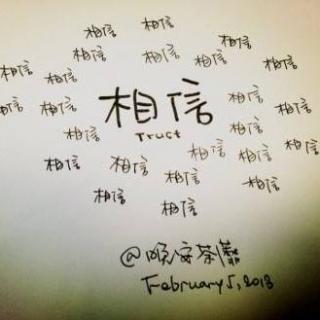 相信
相信
相信
相信
相信
相信
相信
相信
相信
相信
相信
Trust
相信
相信
相信
相信
相信
相信
相信
相信
相信
相信
相信
相信
相信
相信
@晚安茶蘼
February 5, 2013